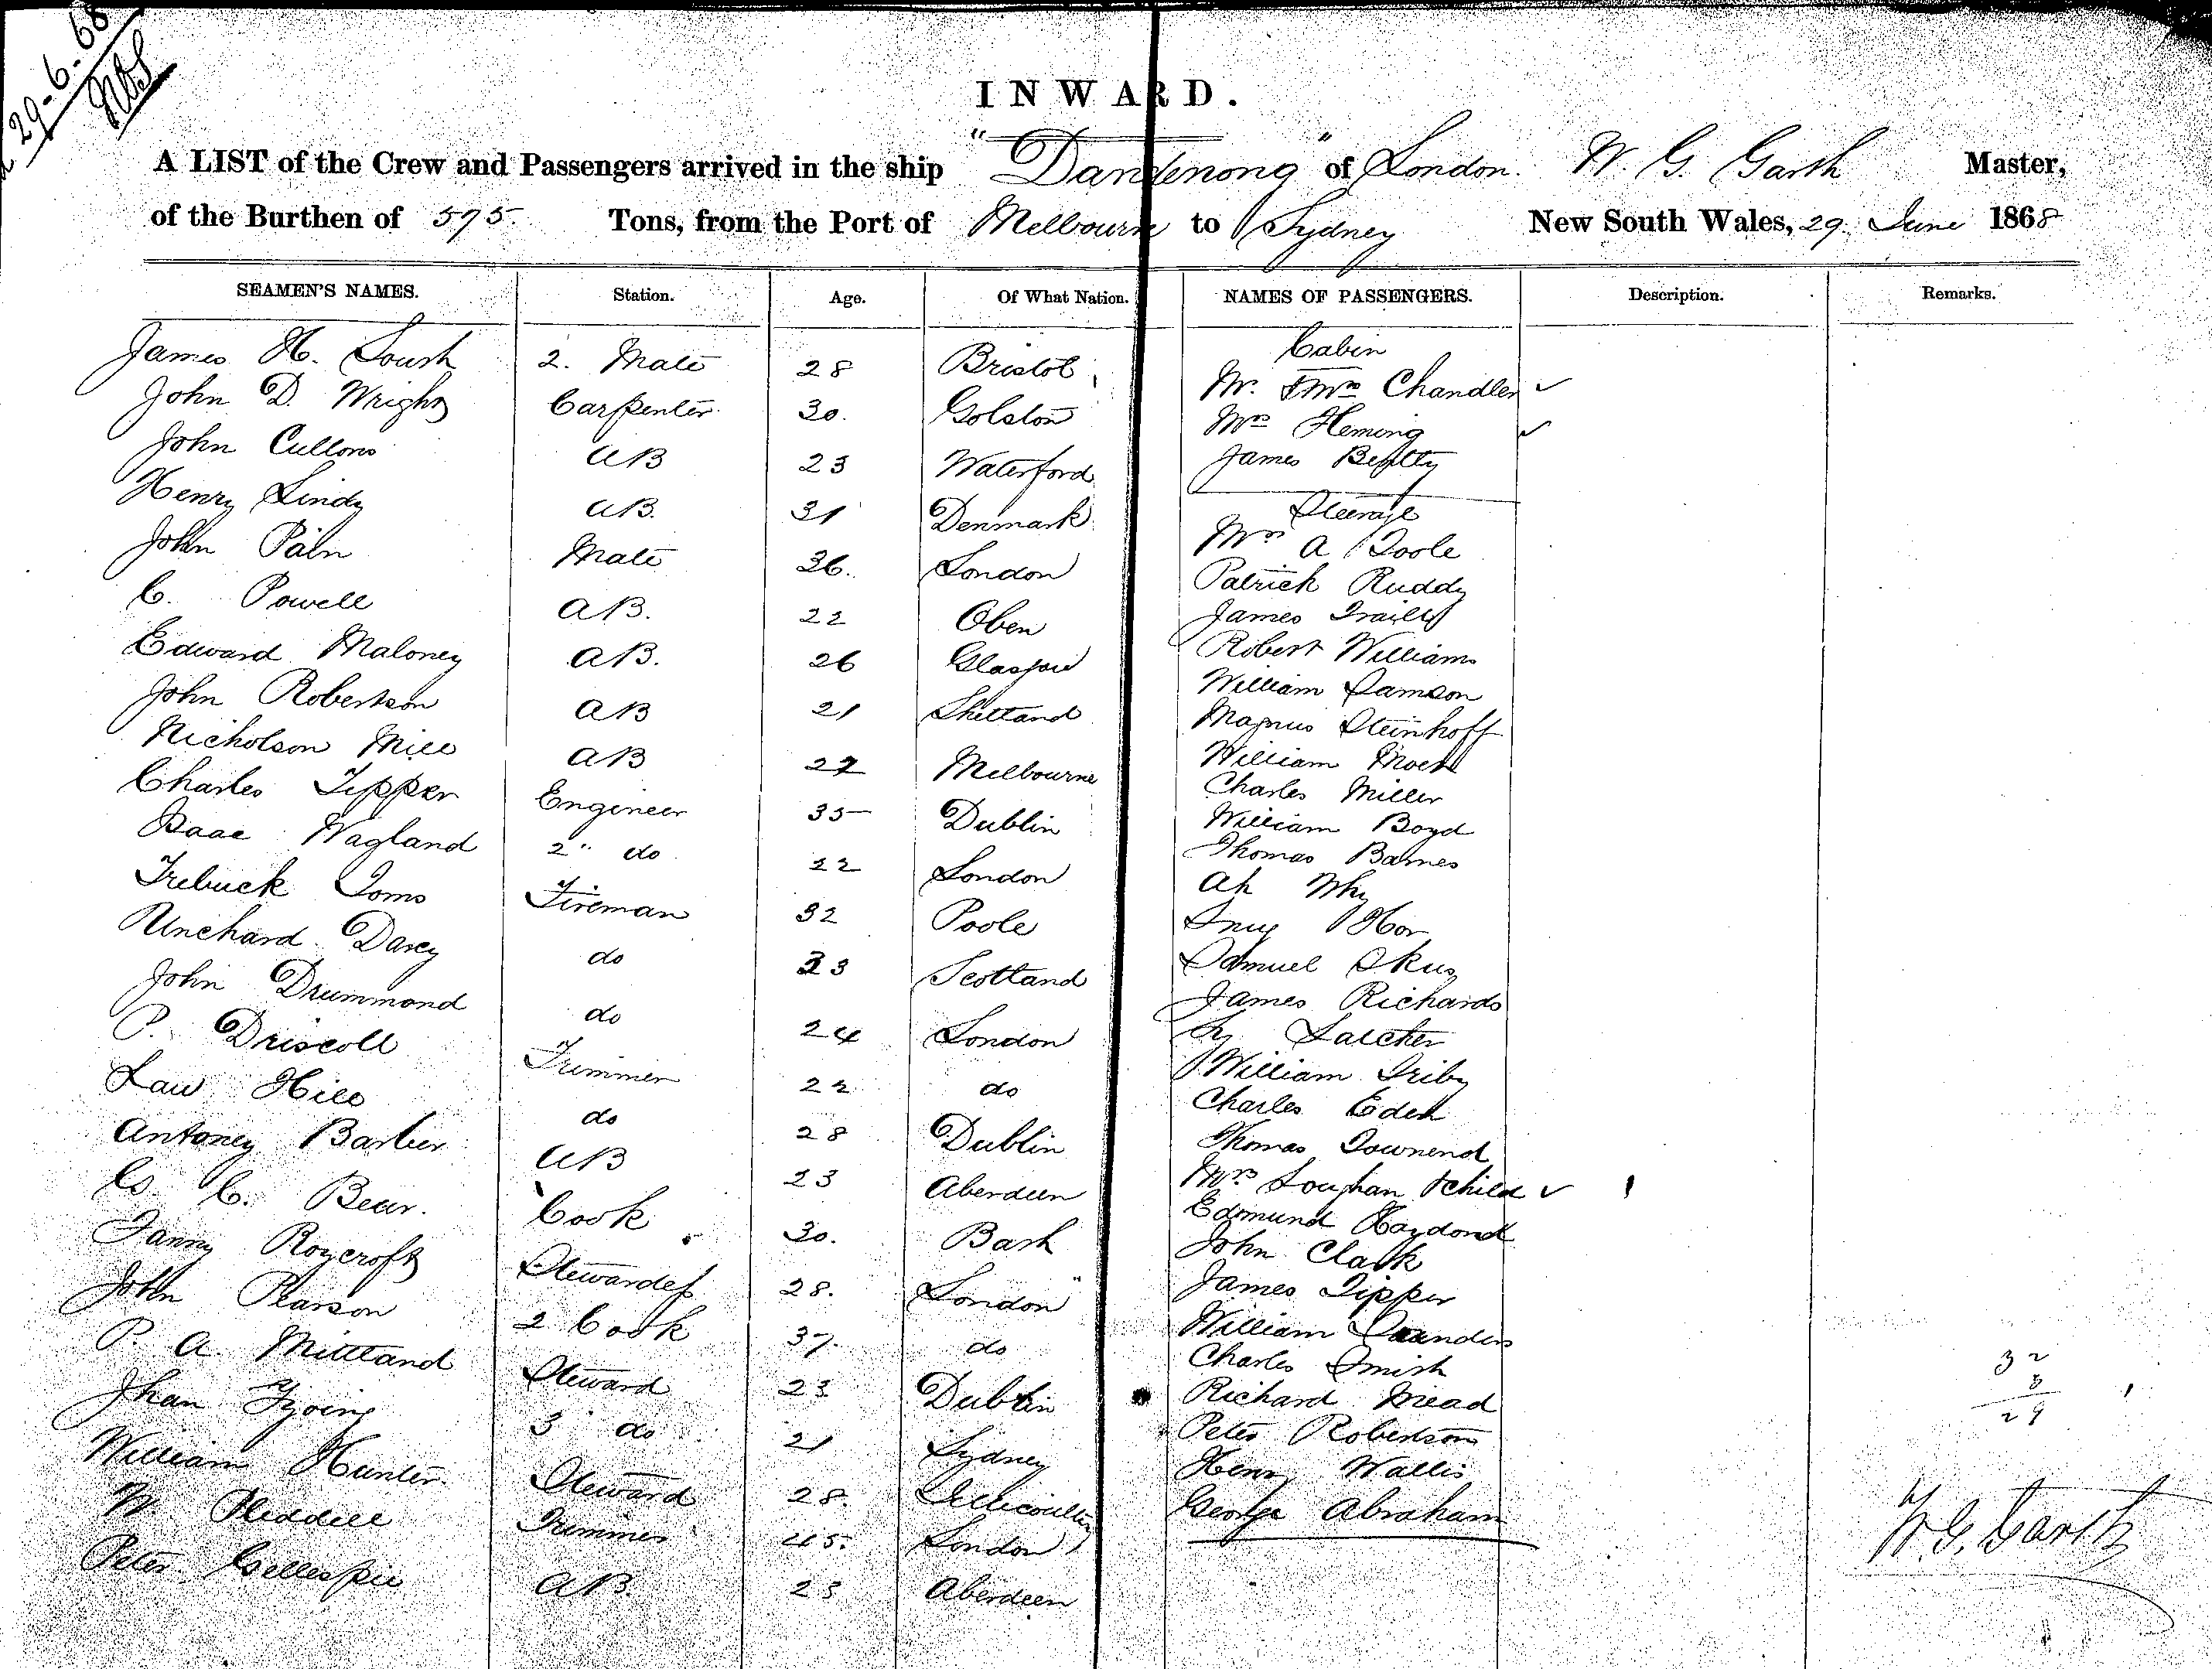 29-6-68
INWARD.
A LIST of the Crew and Passengers arrived in the ship "Dandenong" of London. W. G. Garth Master,
of the Burthen of 575 Tons, from the Port of Melbourne to Sydney New South Wales, 29 June 1868
SEAMEN'S NAMES. Station. Age. Of What Nation. NAMES OF PASSENGERS. Description. Remarks.
James H. South 2. Mate 28 Bristol
John D. Wright Carpenter 30. Golston
John Cullons AB 23 Waterford
Henry Lindy AB. 31 Denmark
John Paln Mate 36. London
C. Powell AB. 22 Oben
Edward Maloney AB. 26 Glasgow
John Robertson AB 21 Shetland
Nicholson Mill AB 22 Melbourne
Charles Tipper Engineer 35 Dublin
Isaac Wagland 2" do 22 London
Trebuck Toms Fireman 32 Poole
Darcy do 23 Scotland
John Drummond do 24 London
P. Driscoll Trimmer 22 do
Law Hill do 28 Dublin
Antoney Barber AB 23 Aberdeen
C. Bear. Cook 30. Bath
Fanny Roycroft Stewardess 28. London
John Pearson 2 Cook 37. do
P. A. Mittland Steward 23 Dublin
3 do 21 Sydney
William Hunter Steward 28.
W. Trimmer 45. London
Peter Gillespie AB. 25 Aberdeen
Cabin
Mr. & Mrs Chandler ✓
Mrs Fleming ✓
James
Steerage
Mrs A Toole
Patrick Ruddy
James
Robert Williams
William Samson
Magnus Steinhoff
William
Charles Miller
William Boyd
Thomas Barnes
Ah Why
Hor
Samuel
James Richards
William
Charles Eden
Thomas Townend
Mrs Loughan & child ✓
Edmund
John Clark
James Tipper
William Saunders
Charles Smith
Richard Mead
Peter Robertson
Henry Wallis
George Abraham
32
8
24
W. G. Garth